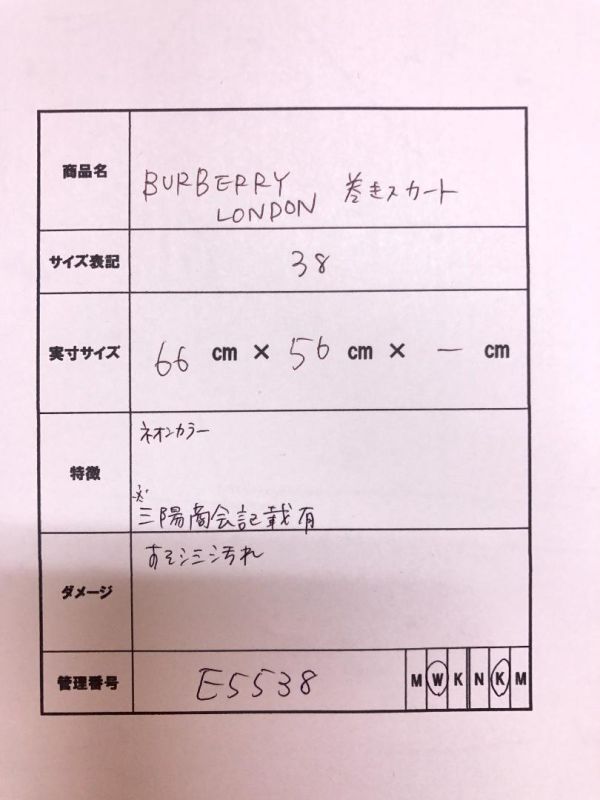 商品名 BURBERRY 巻きスカート
LONDON
サイズ表記 38
実寸サイズ 66 cm × 56 cm × ー cm
特徴 ネオンカラー
※
三陽商会記載有
ダメージ すそシミ汚れ
管理番号 E5538 M W K N K M